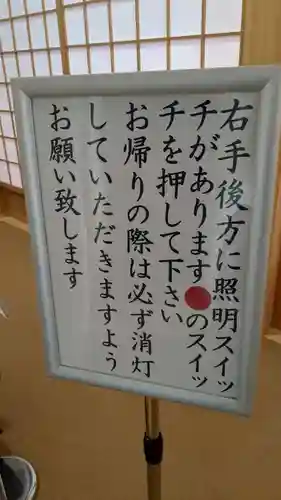 右手後方に照明スイッ
チがあります●のスイッ
チを押して下さい
お帰りの際は必ず消灯
していただきますよう
お願い致します